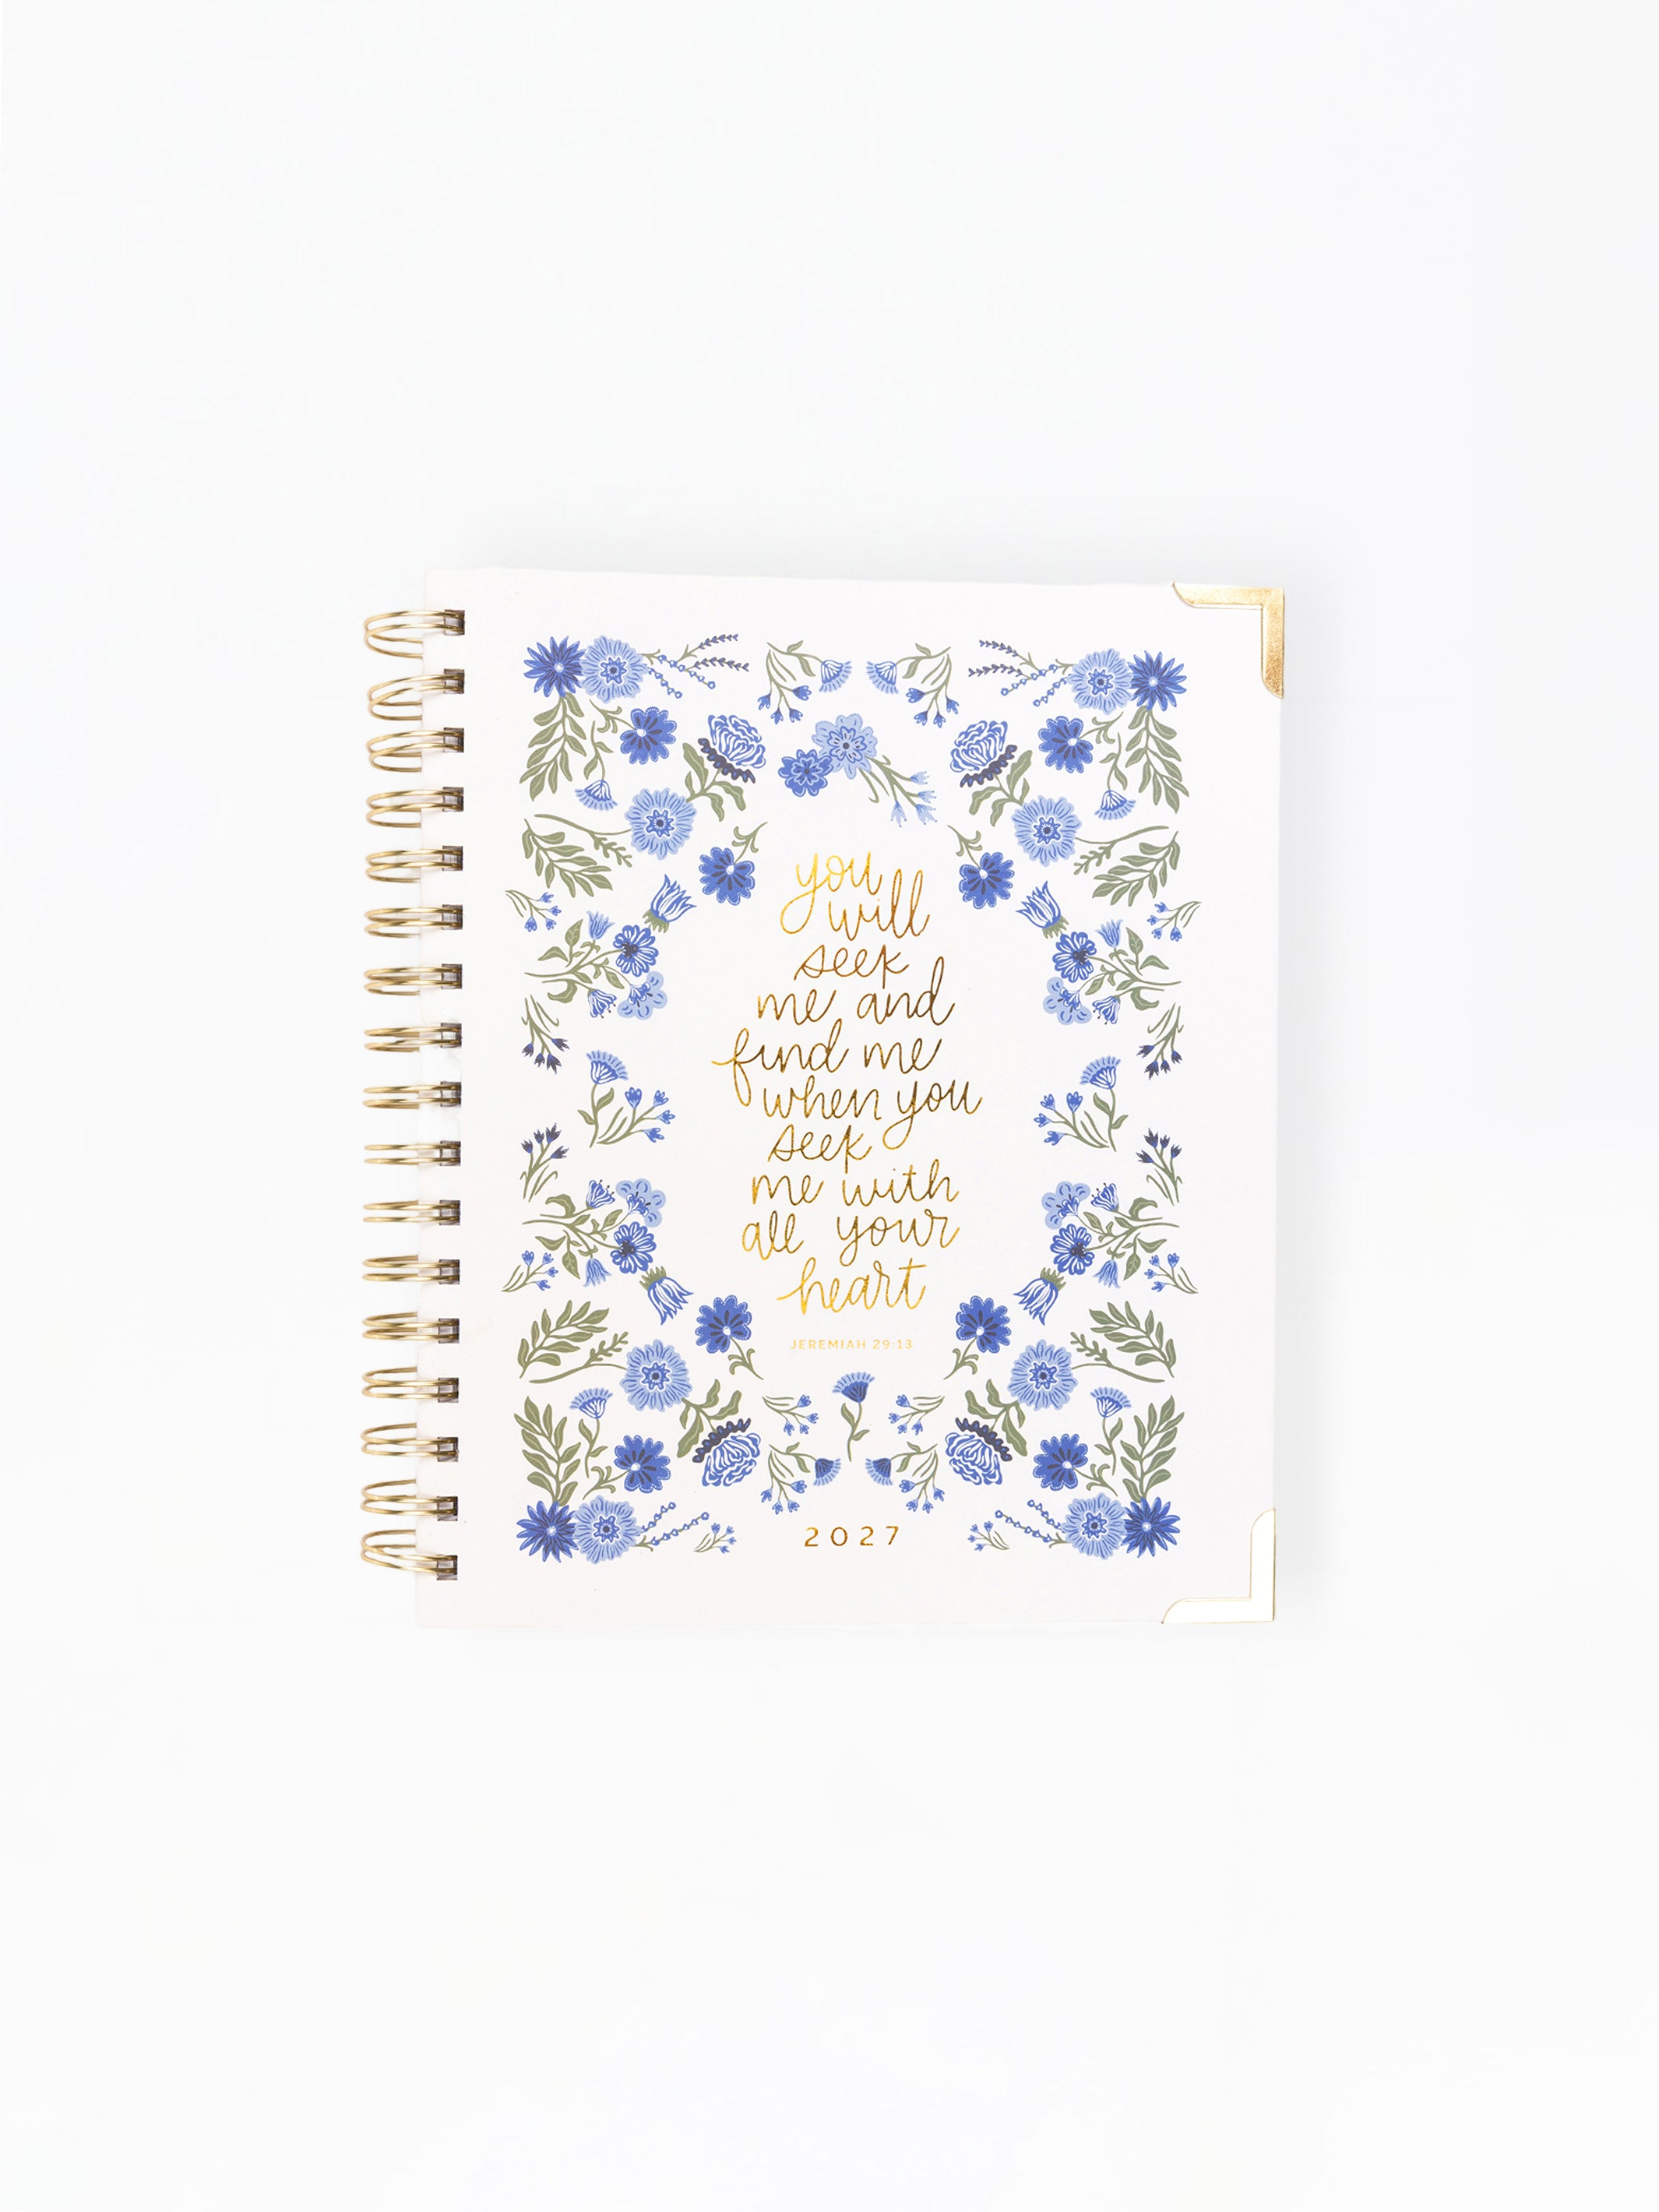 you
will
seek
me and
find me
when you
seek
me with
all your
heart
JEREMIAH 29:13
2027